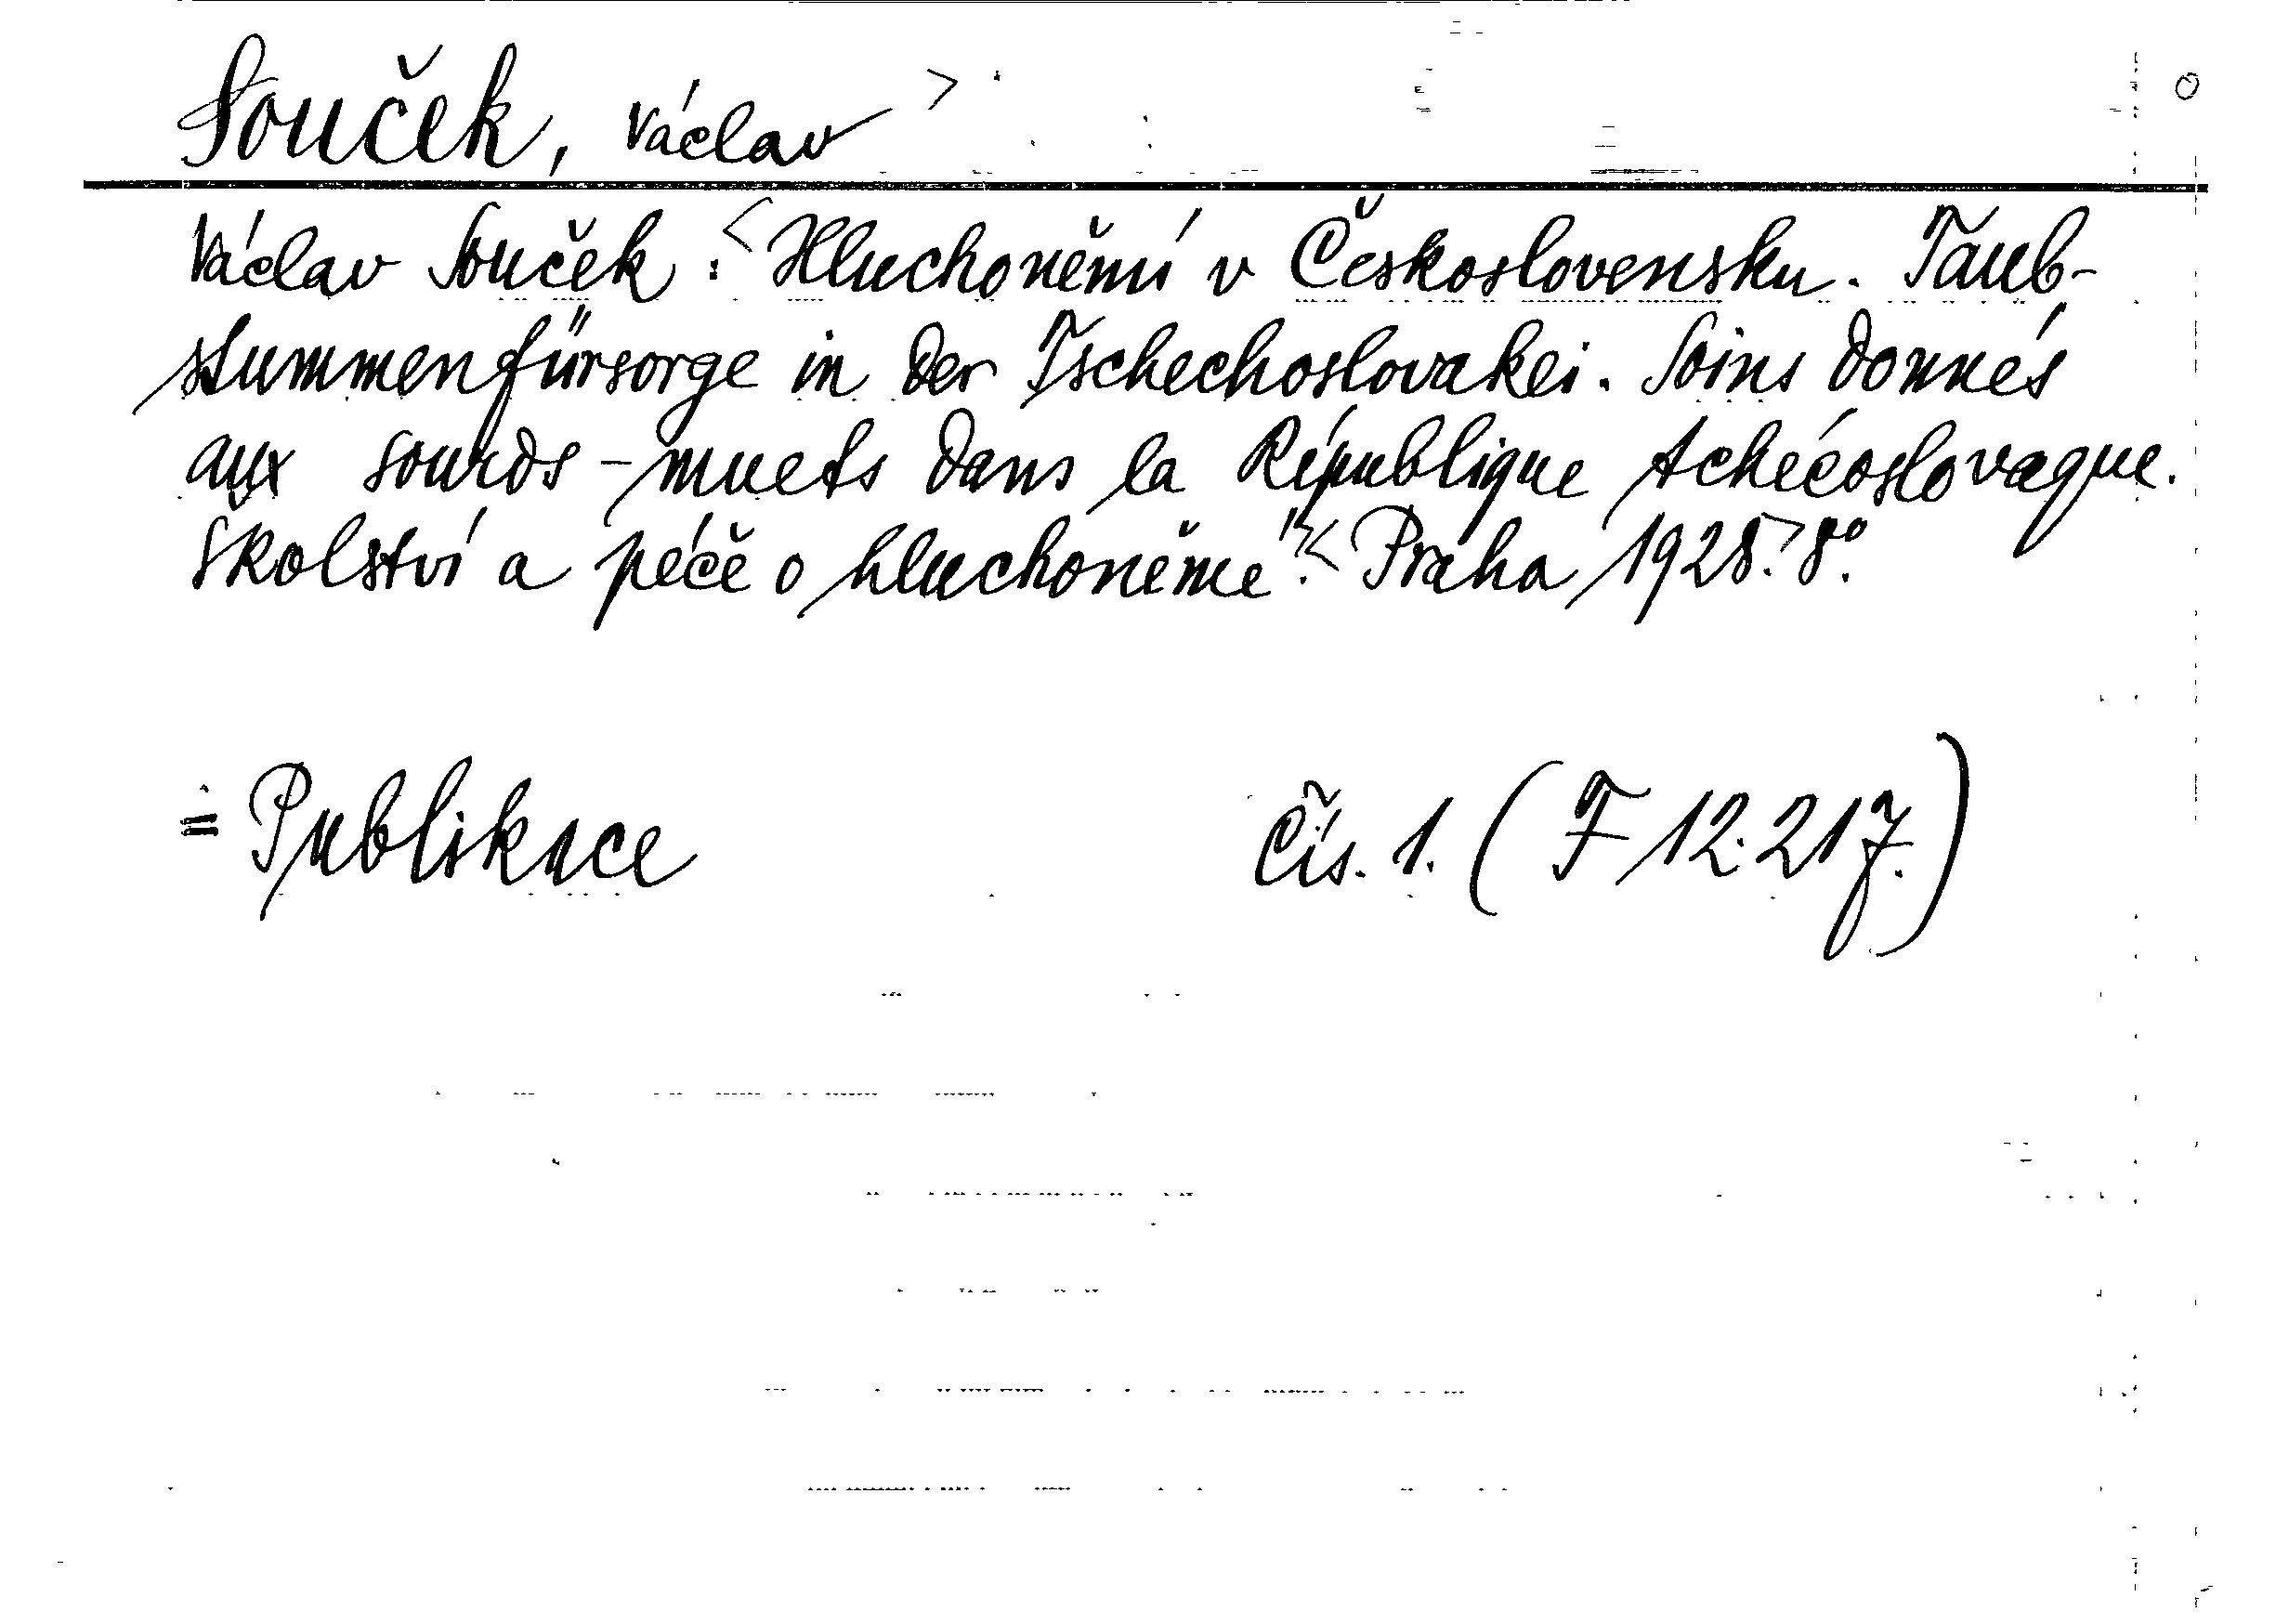 Souček, Václav >
Václav Souček : < Hluchoněmí v Československu. Taub-
stummenfürsorge in der Tschechoslovakei. Soins donnés
aux sourds-muets dans la République tchécoslovaque.
Školství a péče o hluchoněmé. > < Praha 1928. > 8°.
= Publikace čís. 1. (F 12.217.)